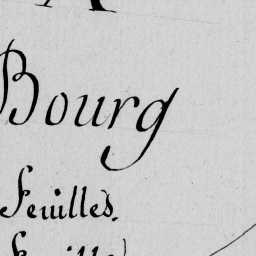 Bourg
feuilles.